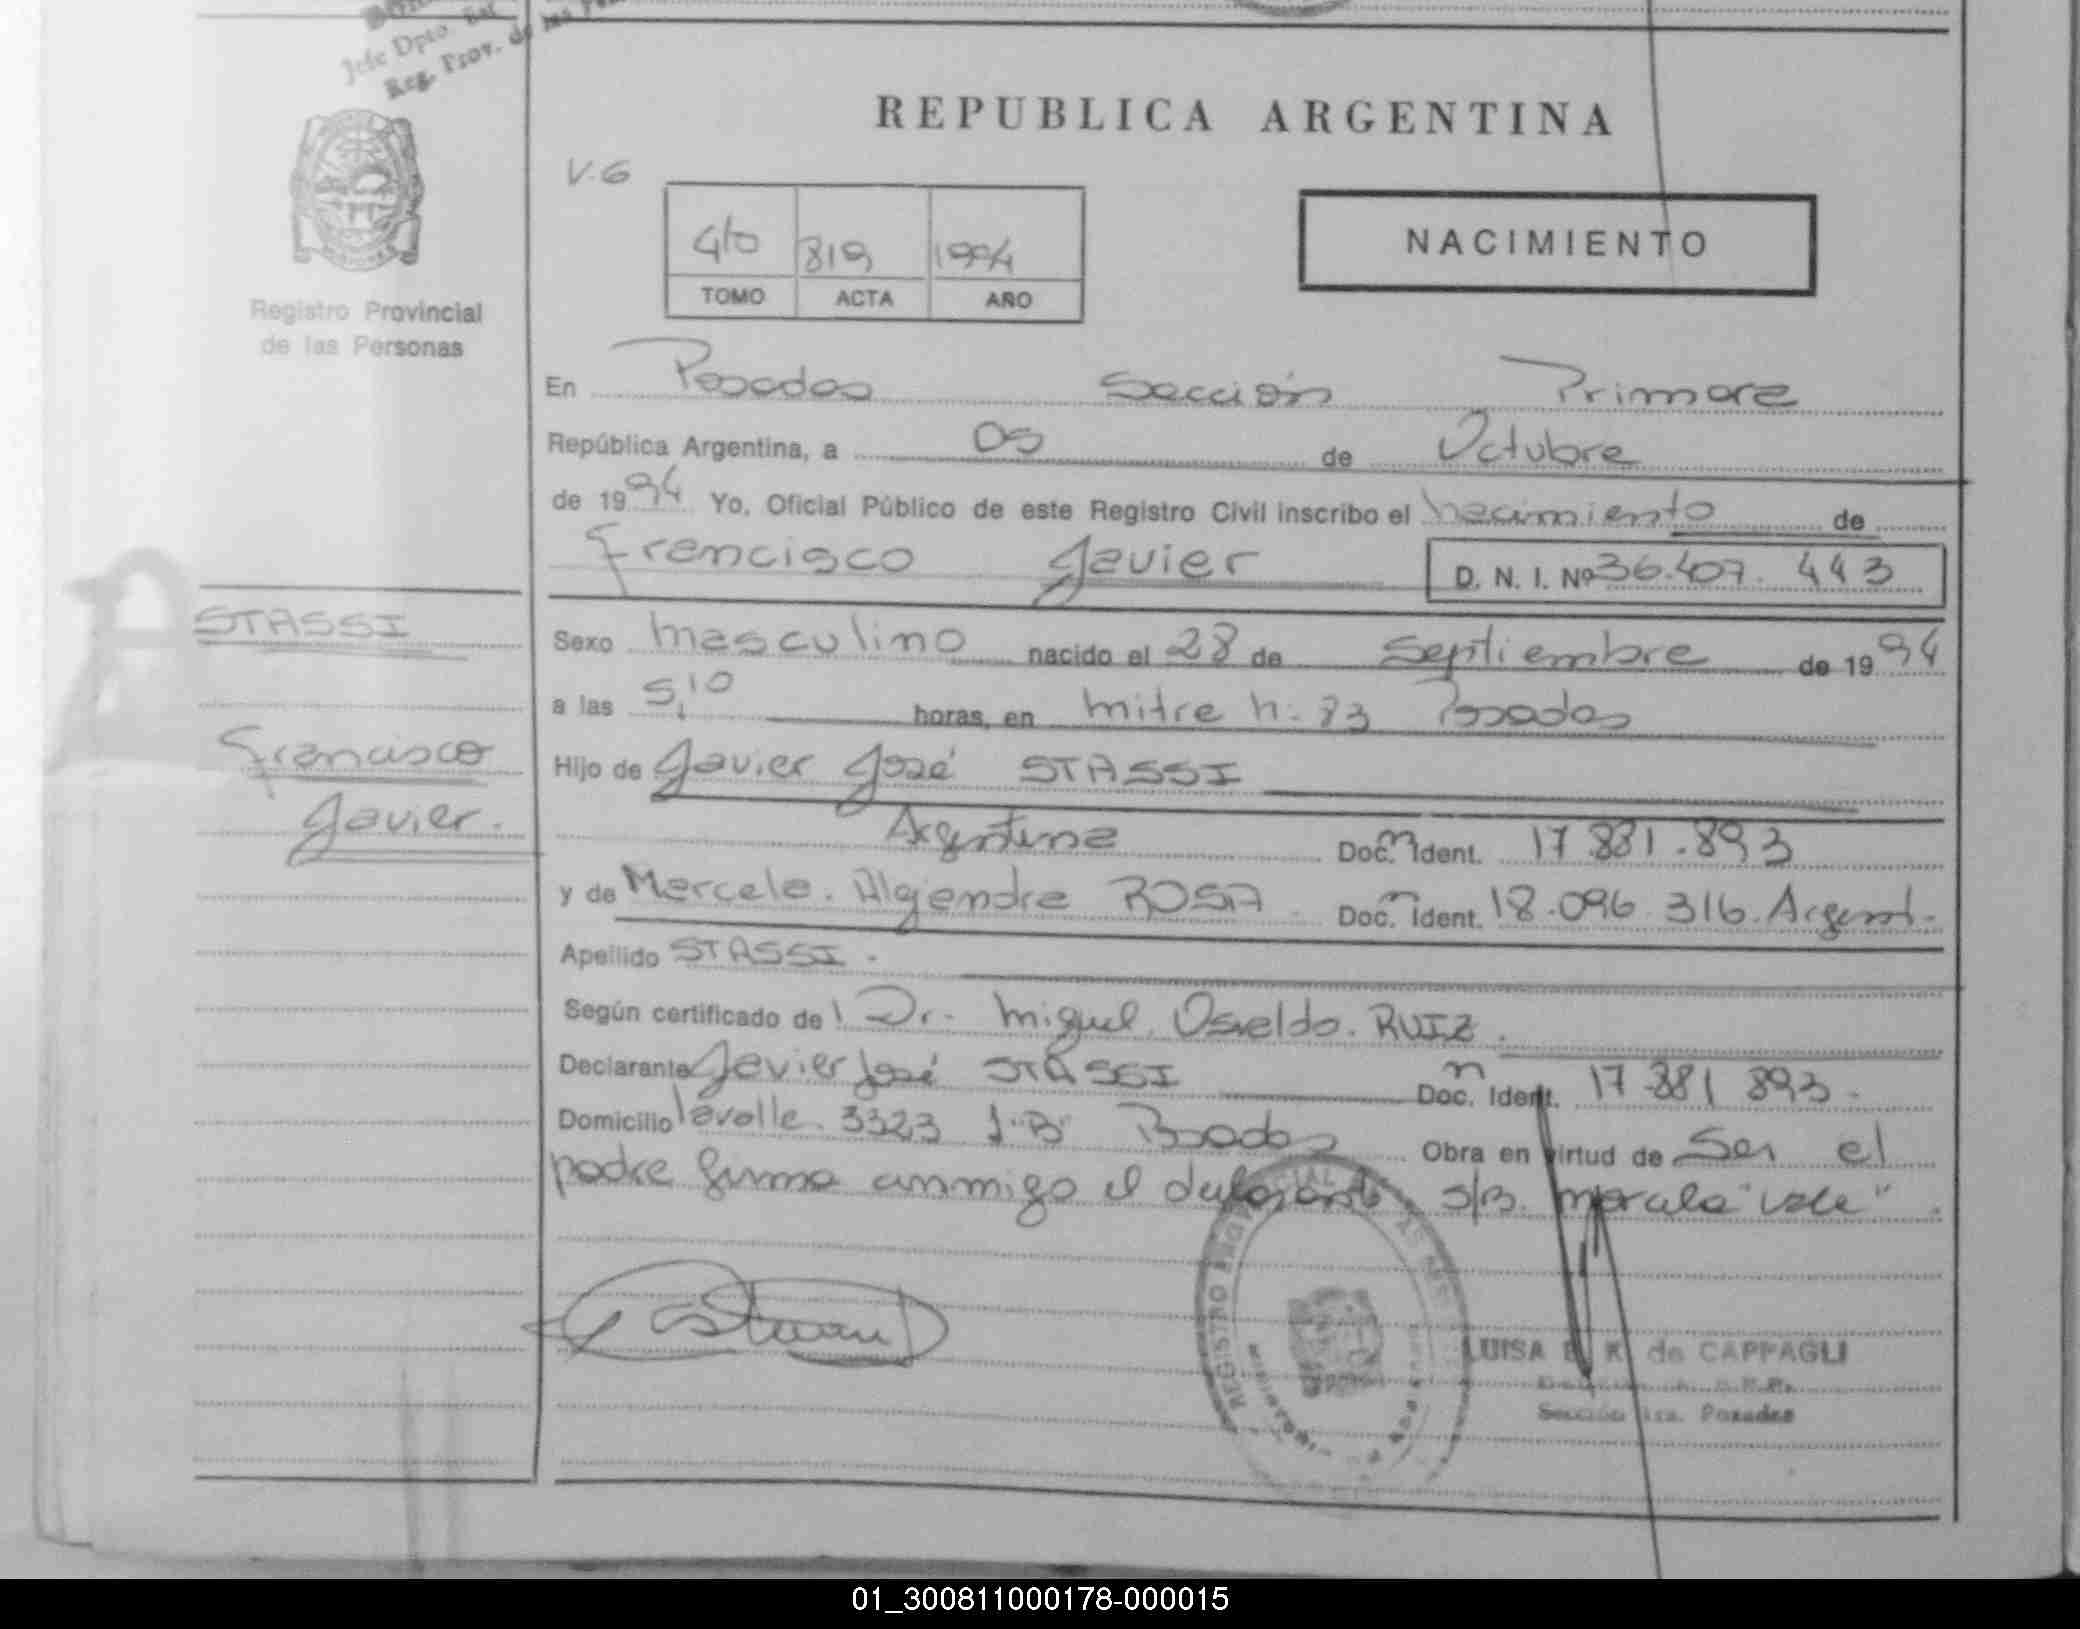 Jefe Dpto.
Reg. Prov. de las
REPUBLICA ARGENTINA
V.6
4to 819 1994
TOMO ACTA AÑO
NACIMIENTO
Registro Provincial
de las Personas
En Posadas Sección Primera
República Argentina, a 05 de Octubre
de 1994 Yo, Oficial Público de este Registro Civil inscribo el nacimiento de
Francisco Javier D. N. I. Nº 36.407.443
STASSI
Sexo masculino nacido el 28 de Septiembre de 1994
a las 5,10 horas, en mitre n: 83 Posadas
Francisco
Hijo de Javier José STASSI
Javier.
Argentina Doc. Ident. 17 881.893
y de Marcela. Alejandra ROSA Doc. Ident. 18.096.316. Argent.
Apellido STASSI.
Según certificado de Dr. Miguel. Osvaldo. RUIZ.
Declarante Javier José STASSI Doc. Ident. 17 881 893.
Domicilio lavalle 3323 Posadas Obra en virtud de Ser el
padre firma conmigo el s/B. "vale"
REGISTRO PROVINCIAL DE LAS
LUISA E. K. de CAPPAGLI
Sección 1ra. Posadas
01_300811000178-000015